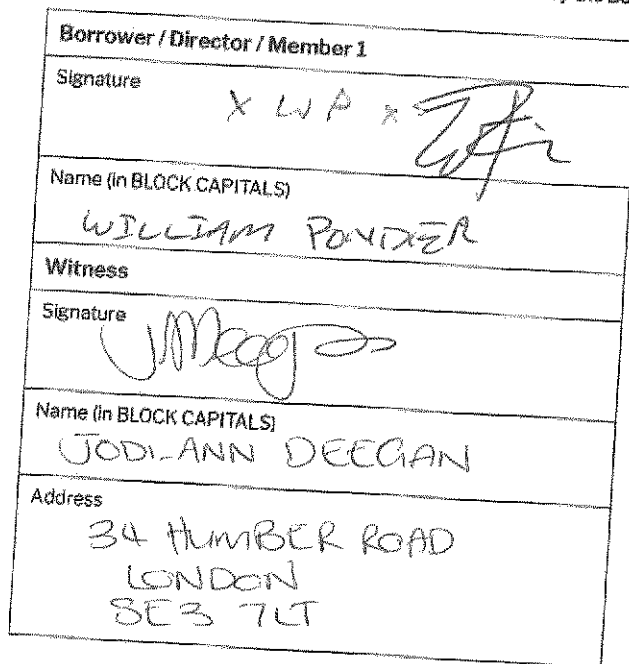 Borrower / Director / Member 1
Signature
X WP X
Name (in BLOCK CAPITALS)
WILLIAM POYDER
Witness
Signature
Name (in BLOCK CAPITALS)
JODI-ANN DEEGAN
Address
34 HUMBER ROAD
LONDON
SE3 7LT